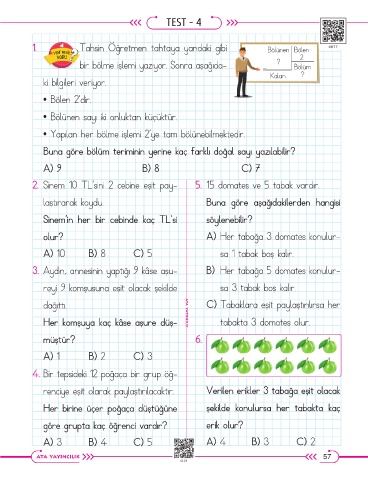 TEST - 4
1. Tahsin Öğretmen tahtaya yandaki gibi
bir bölme işlemi yazıyor. Sonra aşağıda-
ki bilgileri veriyor.
Bölünen Bölen
? 2
Bölüm
Kalan ?
• Bölen 2'dir.
• Bölünen sayı iki onluktan küçüktür.
• Yapılan her bölme işlemi 2'ye tam bölünebilmektedir.
Buna göre bölüm teriminin yerine kaç farklı doğal sayı yazılabilir?
A) 9 B) 8 C) 7
2. Sinem 10 TL'sini 2 cebine eşit pay-
laştırarak koydu.
Sinem'in her bir cebinde kaç TL'si
olur?
A) 10 B) 8 C) 5
3. Aydın, annesinin yaptığı 9 kâse aşu-
reyi 9 komşusuna eşit olacak şekilde
dağıttı.
Her komşuya kaç kâse aşure düş-
müştür?
A) 1 B) 2 C) 3
4. Bir tepsideki 12 poğaça bir grup öğ-
renciye eşit olarak paylaştırılacaktır.
Her birine üçer poğaça düştüğüne
göre grupta kaç öğrenci vardır?
A) 3 B) 4 C) 5
5. 15 domates ve 5 tabak vardır.
Buna göre aşağıdakilerden hangisi
söylenebilir?
A) Her tabağa 3 domates konulur-
sa 1 tabak boş kalır.
B) Her tabağa 5 domates konulur-
sa 3 tabak boş kalır.
C) Tabaklara eşit paylaştırılırsa her
tabakta 3 domates olur.
6.
Verilen erikler 3 tabağa eşit olacak
şekilde konulursa her tabakta kaç
erik olur?
A) 4 B) 3 C) 2
ATA YAYINCILIK
57